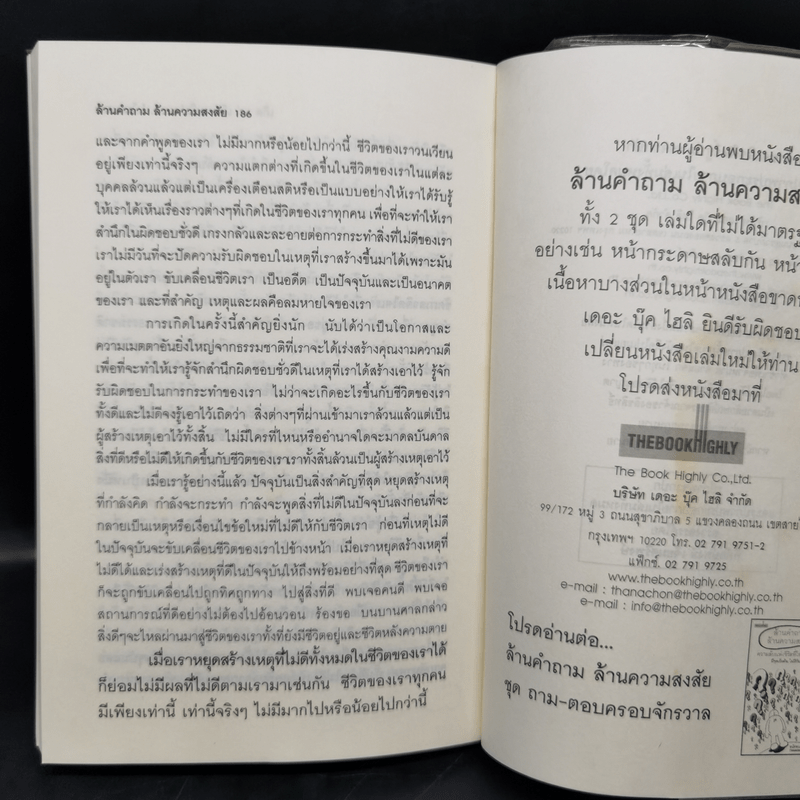 ล้านคำถาม ล้านความสงสัย 186
และจากคำพูดของเรา ไม่มีมากหรือน้อยไปกว่านี้ ชีวิตของเราวนเวียน
อยู่เพียงเท่านี้จริงๆ ความแตกต่างที่เกิดขึ้นในชีวิตของเราในแต่ละ
บุคคลล้วนแล้วแต่เป็นเครื่องเตือนสติหรือเป็นแบบอย่างให้เราได้รับรู้
ให้เราได้เห็นเรื่องราวต่างๆที่เกิดในชีวิตของเราทุกคน เพื่อที่จะทำให้เรา
สำนึกในผิดชอบชั่วดี เกรงกลัวและละอายต่อการกระทำสิ่งที่ไม่ดีของเรา
เราไม่มีวันที่จะปัดความรับผิดชอบในเหตุที่เราสร้างขึ้นมาได้เพราะมัน
อยู่ในตัวเรา ขับเคลื่อนชีวิตเรา เป็นอดีต เป็นปัจจุบันและเป็นอนาคต
ของเรา และที่สำคัญ เหตุและผลคือลมหายใจของเรา
การเกิดในครั้งนี้สำคัญยิ่งนัก นับได้ว่าเป็นโอกาสและ
ความเมตตาอันยิ่งใหญ่จากธรรมชาติที่เราจะได้เร่งสร้างคุณงามความดี
เพื่อที่จะทำให้เรารู้จักสำนึกผิดชอบชั่วดีในเหตุที่เราได้สร้างเอาไว้ รู้จัก
รับผิดชอบในการกระทำของเรา ไม่ว่าจะเกิดอะไรขึ้นกับชีวิตของเรา
ทั้งดีและไม่ดีจงรู้เอาไว้เถิดว่า สิ่งต่างๆที่ผ่านเข้ามาเราล้วนแล้วแต่เป็น
ผู้สร้างเหตุเอาไว้ทั้งสิ้น ไม่มีใครที่ไหนหรืออำนาจใดจะมาดลบันดาล
สิ่งที่ดีหรือไม่ดีให้เกิดขึ้นกับชีวิตของเราเราทั้งสิ้นล้วนเป็นผู้สร้างเหตุเอาไว้
เมื่อเรารู้อย่างนี้แล้ว ปัจจุบันเป็นสิ่งสำคัญที่สุด หยุดสร้างเหตุ
ที่กำลังคิด กำลังจะกระทำ กำลังจะพูดสิ่งที่ไม่ดีในปัจจุบันลงก่อนที่จะ
กลายเป็นเหตุหรือเงื่อนไขข้อใหม่ที่ไม่ดีให้กับชีวิตเรา ก่อนที่เหตุไม่ดี
ในปัจจุบันจะขับเคลื่อนชีวิตของเราไปข้างหน้า เมื่อเราหยุดสร้างเหตุที่
ไม่ดีได้และเร่งสร้างเหตุที่ดีในปัจจุบันให้ถึงพร้อมอย่างที่สุด ชีวิตของเรา
ก็จะถูกขับเคลื่อนไปถูกทิศถูกทาง ไปสู่สิ่งที่ดี พบเจอคนดี พบเจอ
สถานการณ์ที่ดีอย่างไม่ต้องไปอ้อนวอน ร้องขอ บนบานศาลกล่าว
สิ่งดีๆจะไหลผ่านมาสู่ชีวิตของเราทั้งที่ยังมีชีวิตอยู่และชีวิตหลังความตาย
เมื่อเราหยุดสร้างเหตุที่ไม่ดีทั้งหมดในชีวิตของเราได้
ก็ย่อมไม่มีผลที่ไม่ดีตามเรามาเช่นกัน ชีวิตของเราทุกคน
มีเพียงเท่านี้ เท่านี้จริงๆ ไม่มีมากไปหรือน้อยไปกว่านี้
หากท่านผู้อ่านพบหนังสือ
ล้านคำถาม ล้านความส
ทั้ง 2 ชุด เล่มใดที่ไม่ได้มาตรฐ
อย่างเช่น หน้ากระดาษสลับกัน หน้า
เนื้อหาบางส่วนในหน้าหนังสือขาด
เดอะ บุ๊ค ไฮลิ ยินดีรับผิดชอบ
เปลี่ยนหนังสือเล่มใหม่ให้ท่าน
โปรดส่งหนังสือมาที่
THEBOOKHIGHLY
The Book Highly Co.,Ltd.
บริษัท เดอะ บุ๊ค ไฮลิ จำกัด
99/172 หมู่ 3 ถนนสุขาภิบาล 5 แขวงคลองถนน เขตสาย
กรุงเทพฯ 10220 โทร. 02 791 9751-2
แฟ็กซ์. 02 791 9725
www.thebookhighly.co.th
e-mail : thanachon@thebookhighly.co.th
e-mail : info@thebookhighly.co.th
โปรดอ่านต่อ...
ล้านคำถาม ล้านความสงสัย
ชุด ถาม-ตอบครอบจักรวาล